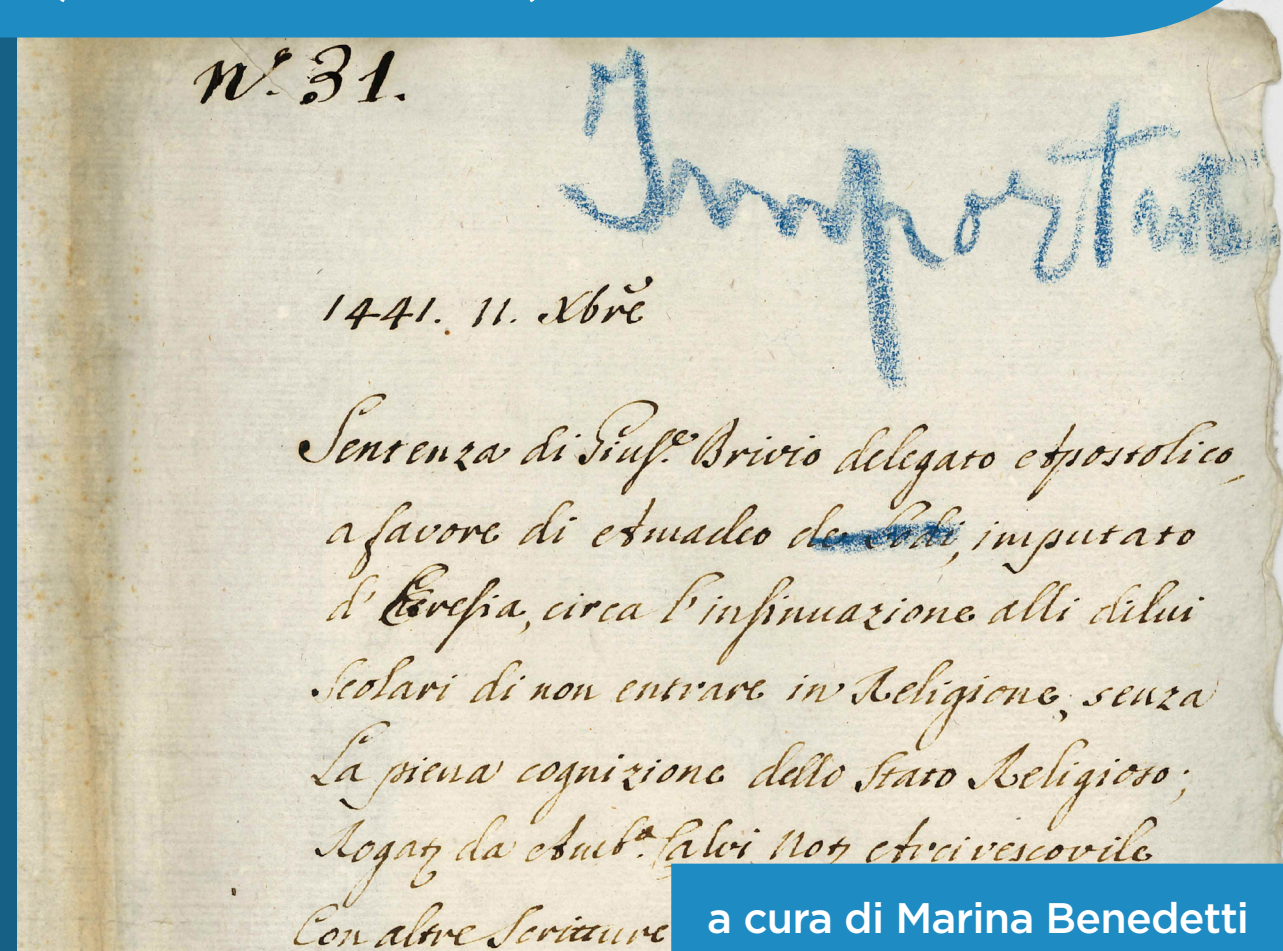 n.º 31.
Important
1441. 11. Xbrē
Sentenza di Giuse. Brivio delegato Apostolico,
a favore di Amadeo de Lodi, imputato
d'Eresia, circa l'insinuazione alli dilui
scolari di non entrare in Religione, senza
La piena cognizione dello Stato Religioso;
Rogaz da Amb.º Calvi Noz Arcivescovile
Con altre Scritture
a cura di Marina Benedetti